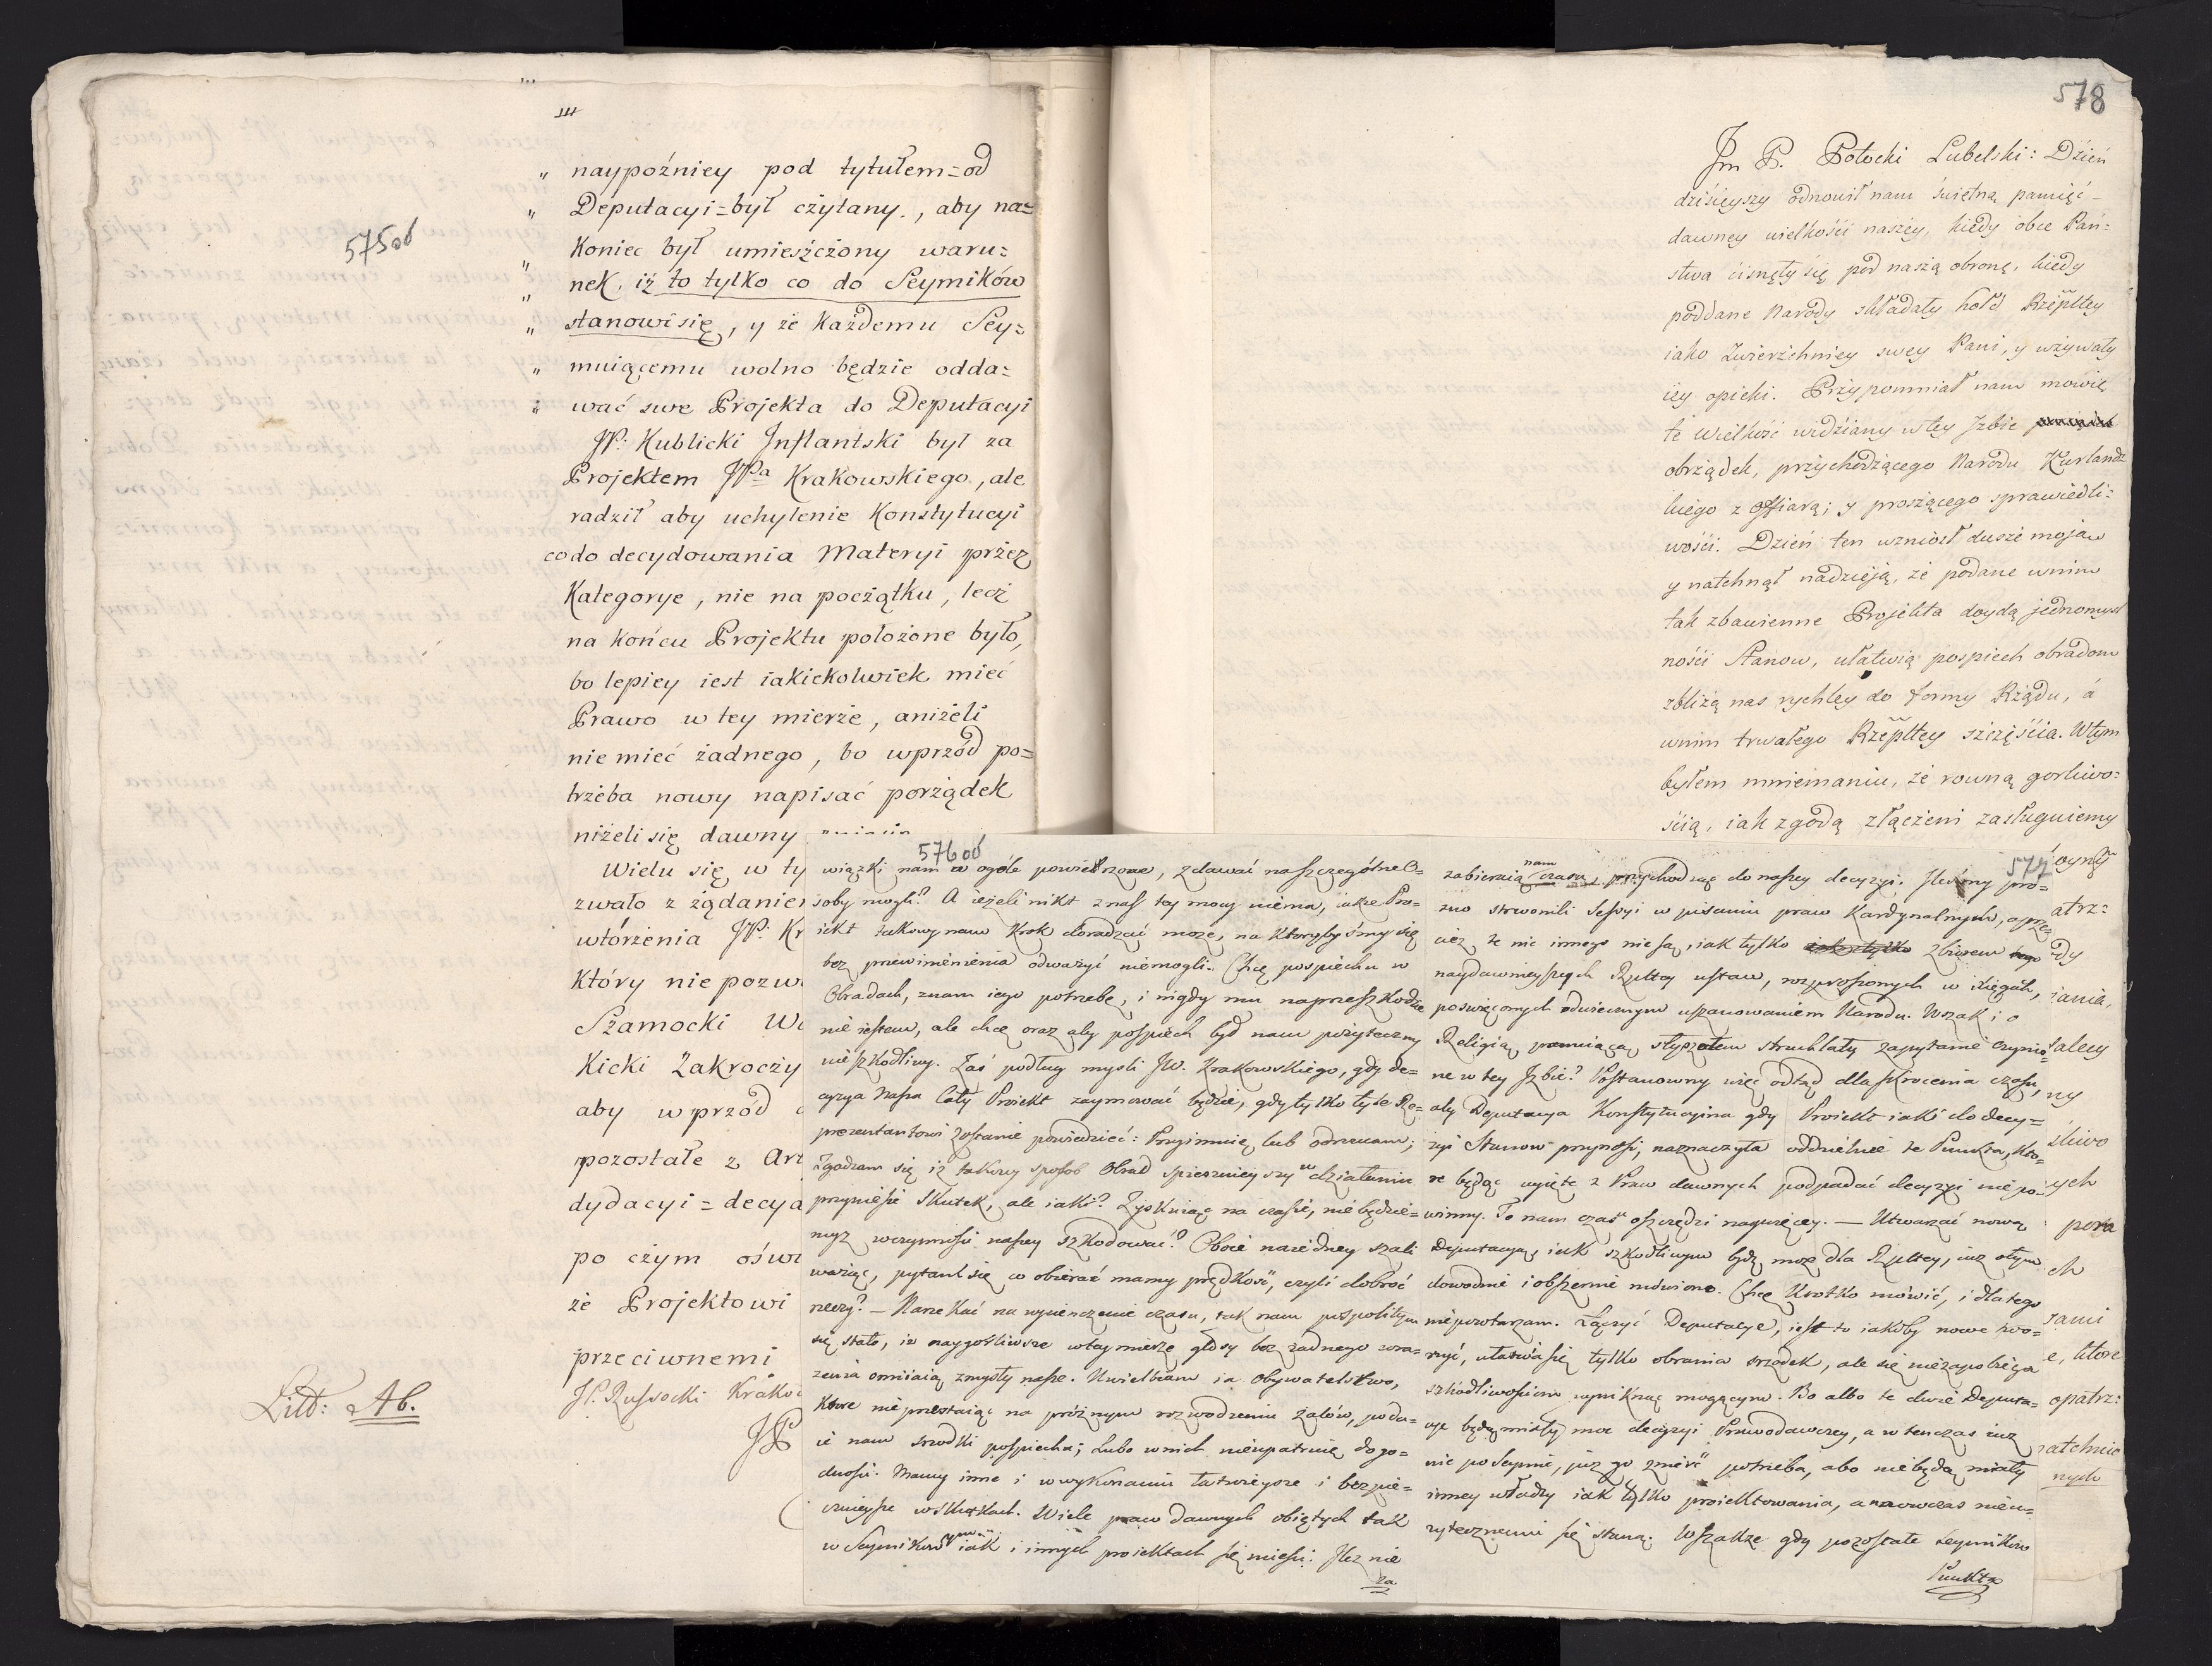 575ob
„ naypoźniey pod tytułem = od
„ Deputacyi = był czytany, aby na=
„ koniec był umieszczony waru=
„ nek, iż to tylko co do Seymików
„ stanowi się, y że każdemu Sey=
„ muiącemu wolno będzie odda=
„ wać swe Projekta do Deputacyi
JP: Kublicki Inflantski był za
Projektem JPa Krakowskiego, ale
radził aby uchylenie Konstytucyi
co do decydowania Materyi przez
Kategorye, nie na początku, lecz
na końcu Projektu położone było,
bo lepiey iest iakiekolwiek mieć
Prawo w tey mierze, aniżeli
nie mieć żadnego, bo wprzód po=
trzeba nowy napisać porządek
niżeli się dawny
Wielu się w ty
zwało z żądanie
wtórżenia JP: Kr
który nie pozw
Szamocki W
Kicki Zakroczy
aby wprzód
pozostałe z Art
dydacyi = decy
po czym oświ
że Projektowi
przeciwnemi
JP. Russocki Krako
JP
Litt: Ab.
576ob
wiązki nam w ogóle powierzone, zdawać na szczególne O=
soby mogli? A ieżeli nikt z nas tey mocy niema, iakże Pro=
iekt takowy nam krok doradzać może, na któryby śmy się
bez przewinienia odważyć niemogli. Chcę pospiechu w
Obradach, znam iego potrzebę, i nigdy mu na przeszkodzie
nie iestem, ale chcę oraz aby pospiech był nam pożyteczny
nieszkodliwy. Zaś podług mysli JW. Krakowskiego, gdy de=
cyzya Nasza Cały Proiekt zaymować będzie, gdy tylko tyle Re=
prezentantowi zostanie powiedzieć: Przyimuię, lub odrzucam;
Zgadzam się iż takowy sposób Obrad spiesznieyszy w działaniu
przyniesie skutek, ale iaki? Zyskuiąc na czasie, nie będzie=
myż w czynności naszey szkodować? Oboie na iedney szali
ważąc, pytam się co obierać mamy prędkość, czyli dobroć
rzeczy? — Narzekać na wycienczenie czasu, tak nam pospolitym
się stało, iż naygorliwsze w tey mierze głosy bez żadnego wra=
żenia omiiaią zmysły nasze. Uwielbiam ia obywatelstwo,
które nieprzestaiąc na próżnym rozwodzeniu żalów, poda=
ie nam srzodki pospiechu; Lubo w nich nieupatruię dogo=
dności. Mamy inne i w wykonaniu łatwieysze i bezpie=
cznieysze w skutkach. Wiele praw dawnych obiętych tak
w Seymikowym iak i innych proiektach się miesci: Ileż nie
za
577
zabieraią nam czasu, przychodząc do naszey decyzyi. Ileśmy pró=
żno strwonili Sessyi w pisaniu praw Kardynalnych, a prze
cież te nic innego nie są, iak tylko zbiorem
naydawnieyszych Rzpltey ustaw, rozproszonych w xięgach,
poswięconych odwiecznym uszanowaniem Narodu. Wszak i o
Religią panuiącą słyszałem struchlały zapytanie czynio=
ne w tey Izbie? Postanowmy więc odtąd dla skrócenia czasu,
aby Deputacya Konstytucyina gdy Proiekt iaki do decy=
zyi Stanów przynosi, naznaczyła oddzielnie te Punkta, któ=
re będąc wyięte z Praw dawnych podpadać decyzyi nie po=
winny. To nam czas oszczędzi naywięcey. — Utwarzać nową
Deputacyą, iak szkodliwym bydz może dla Rzpltey, iuż o tym
dowodnie i obszernie mówiono. Chcę krótko mówić, i dlatego
niepowtarzam. Łączyć Deputacye, iest to iakoby nowe two=
rzyć, ułatwia się tylko obrania srzodek, ale się niezapobiega
szkodliwościom wyniknąć mogącym. Bo albo te dwie Deputa=
cye będą miały moc decyzyi Prawodawczey, a w tenczas iuż
nie po Seymie, iuż go znieść potrzeba, abo nie będą miały
inney władzy iak tylko proiektowania, a naówczas nieu=
żytecznemi się staną. Wszakże gdy pozostałe Seymików
Punkta
578
Jm P. Potocki Lubelski: Dzień
dzisieyszy odnowił nam świetną pamięć
dawney wielkości naszey, kiedy obce Pań=
stwa cisnęły się pod naszą obronę, kiedy
poddane Narody składały hołd Rzepltey
iako Zwierzchniey swey Pani, y wzywały
iey opieki. Przypomniał nam mówię
te Wielkość widziany w tey Izbie
obrządek, przychodzącego Narodu Kurlandz
kiego z offiarą; y proszącego sprawiedli=
wości. Dzień ten wzniósł dusze moją
y natchnął nadzieją, że podane w nim
tak zbawienne Projekta doydą jednomyśl
ności Stanow, ułatwią pospiech obradom
zbliżą nas rychley do formy Rządu, a
w nim trwałego Rzepltey szczęścia. W tym
byłem mniemaniu, że rowną gorliwo=
ścią, iak zgodą złączeni zasługuiemy
atrz:
dy
iania,
alecy
ny
śliwo
ych
pora
ch
sami
e, które
opatrz:
natchnie
nych